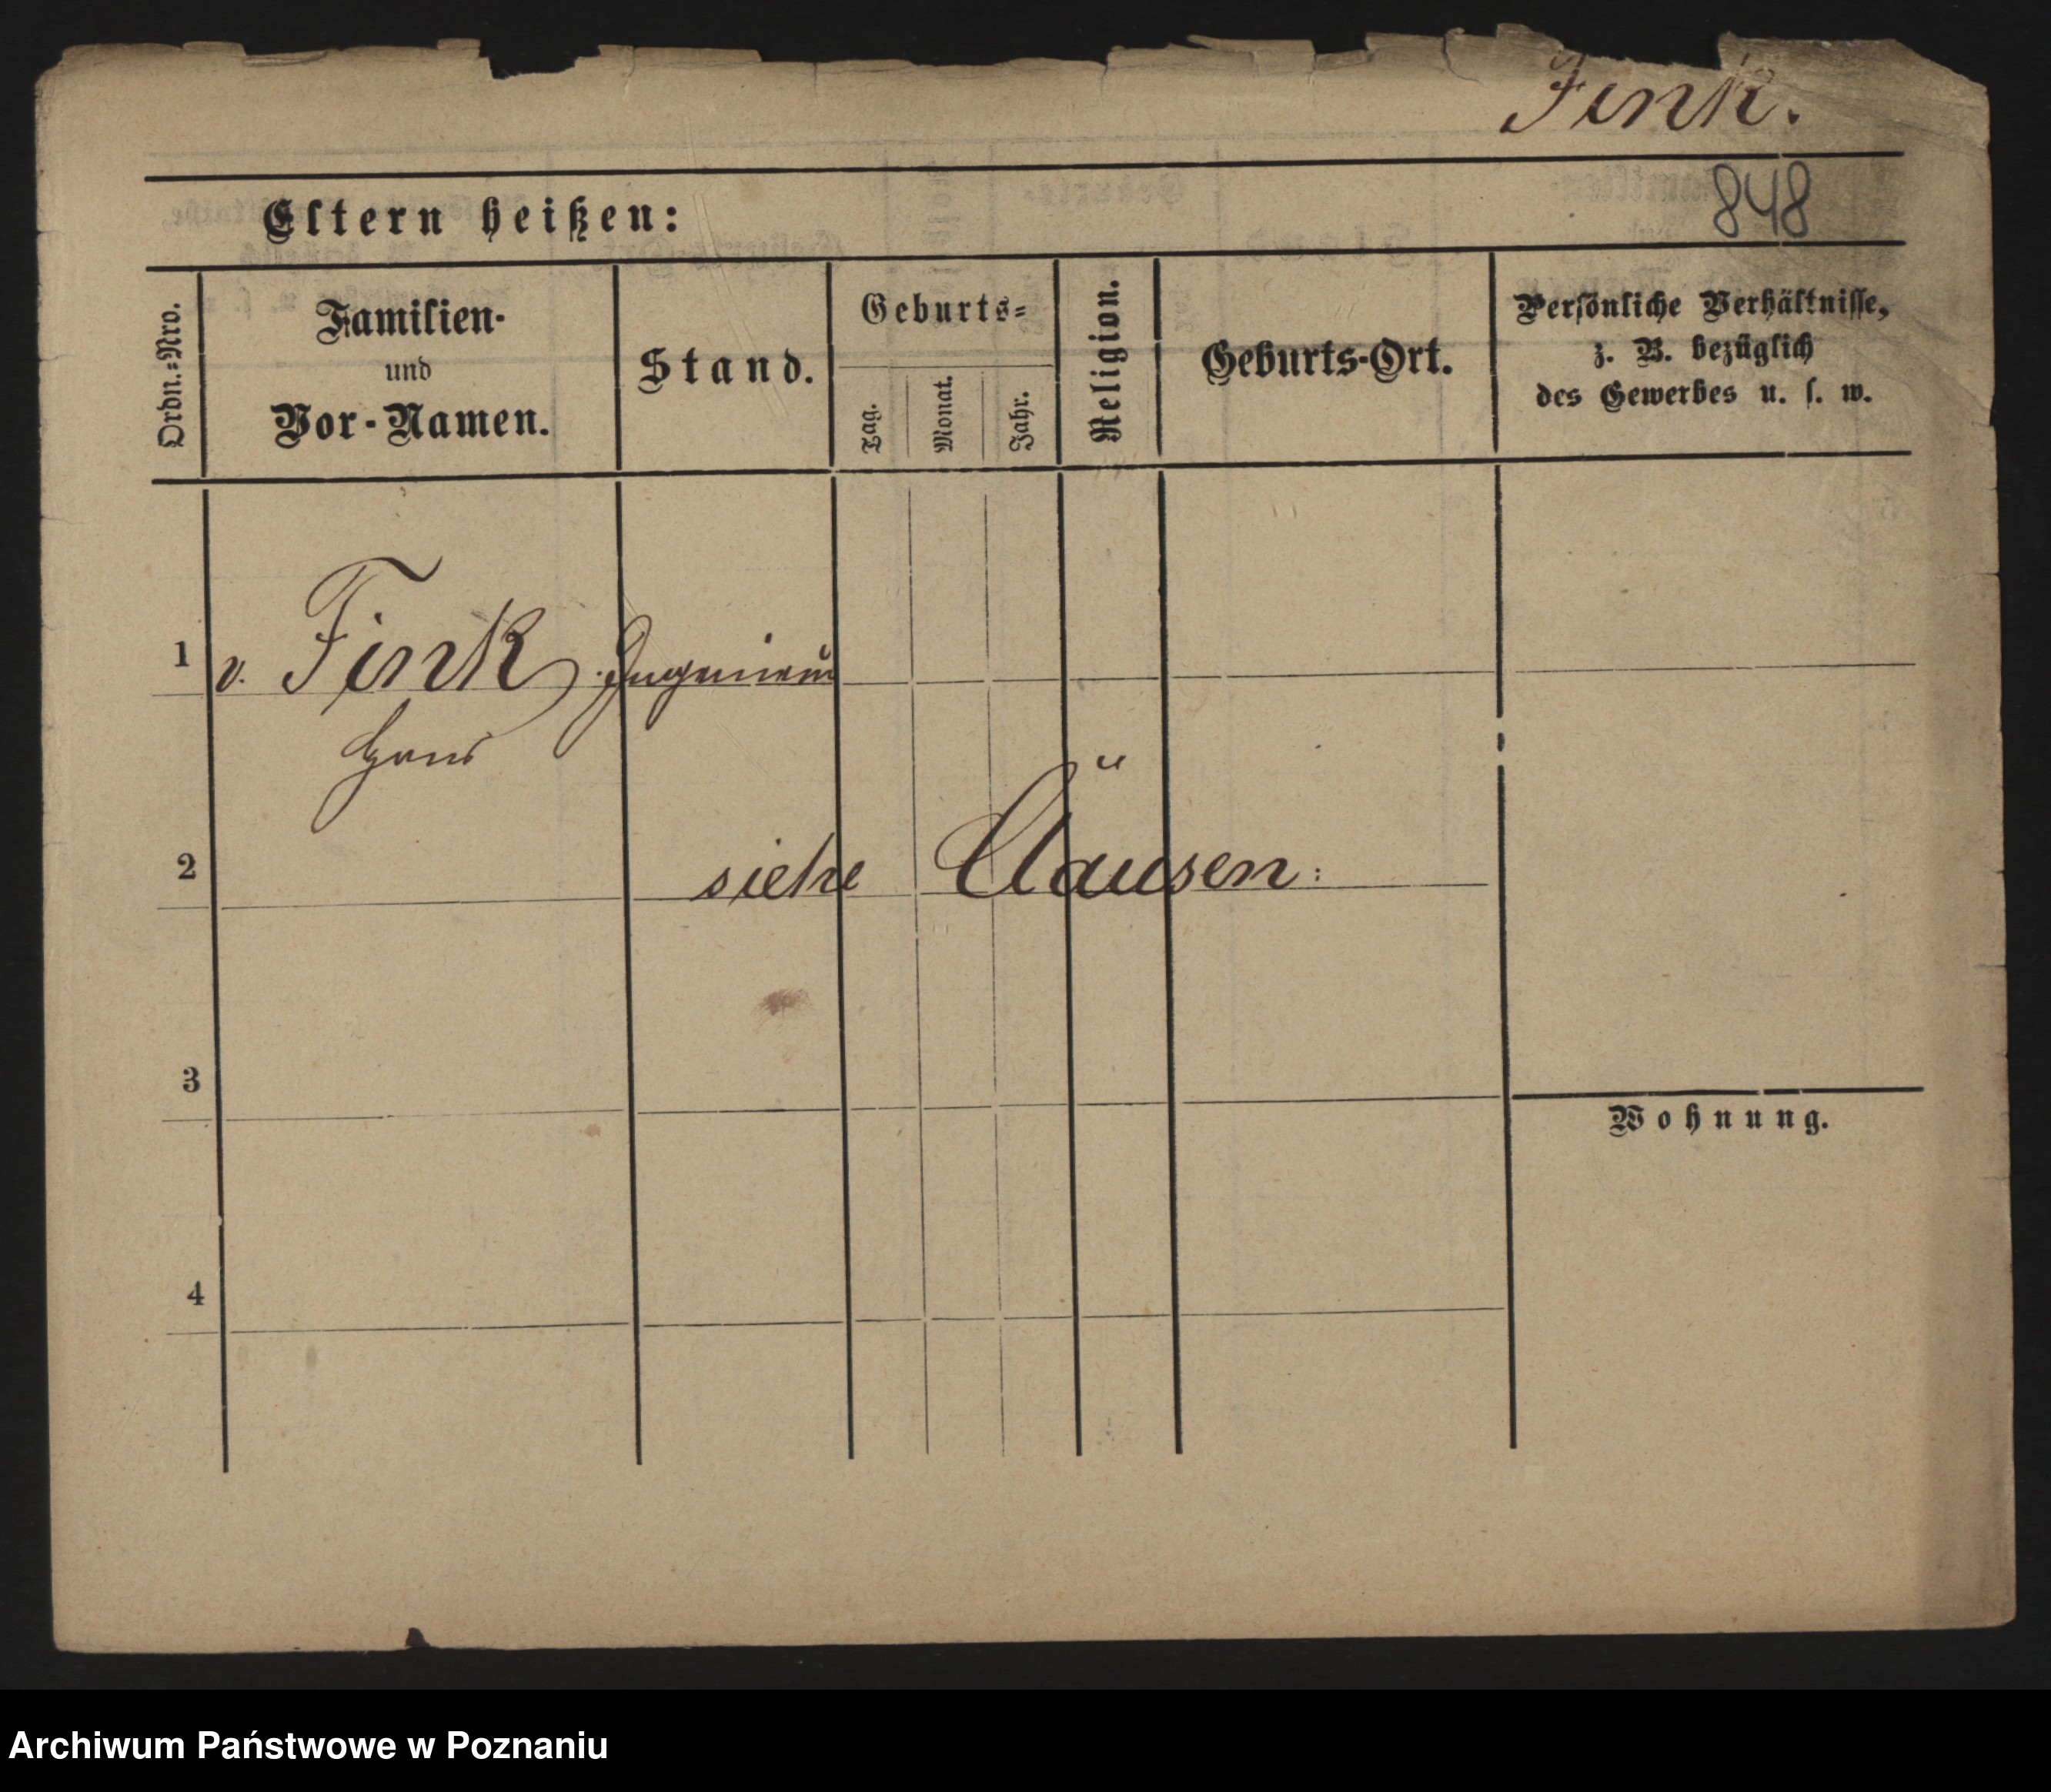 Fink.
848
Eltern heißen:
Ordn.=Nro.
Familien-
und
Vor-Namen.
Stand.
Geburts=
Tag.
Monat.
Jahr.
Religion.
Geburts-Ort.
Persönliche Verhältnisse,
z. B. bezüglich
des Gewerbes u. s. w.
1 v. Fink Ingenieur
Hans
2 siehe Claüsen:
3
Wohnung.
4
Archiwum Państwowe w Poznaniu